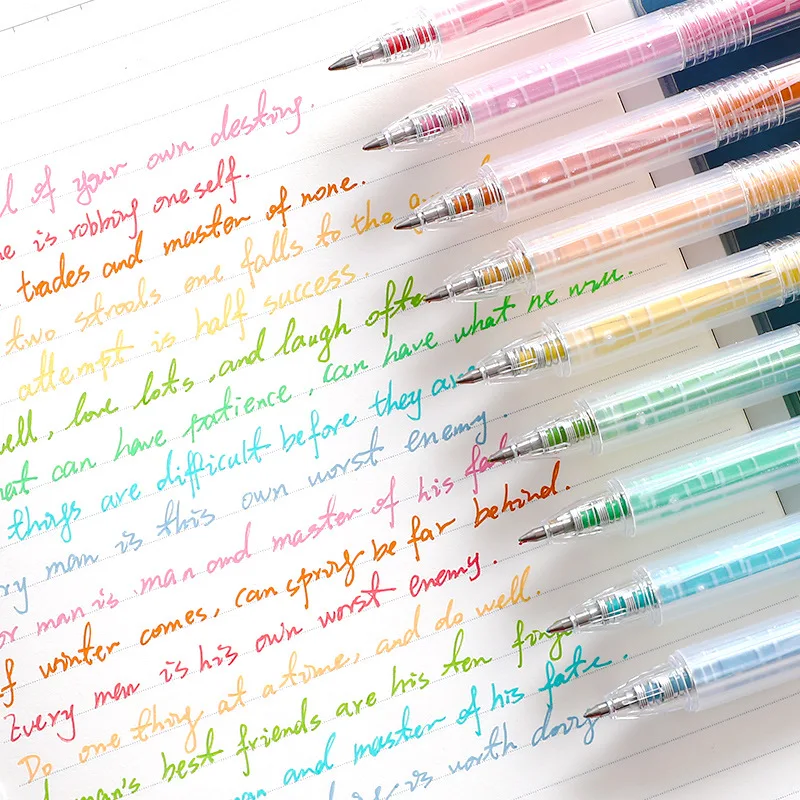 of your own destiny.
is robbing oneself.
trades and master of none.
two strools one falls to the
attempt is half success.
well, love lots, and laugh ofte
hat can have patience, can have what he
things are difficult before they are
ry man is this own worst enemy.
or man is man and master of his
f winter comes, can spring be far behind.
Every man is his own worst enemy.
Do one thing at a time, and do well.
man's best friends are his ten
man and master of his fate.
is worth doing